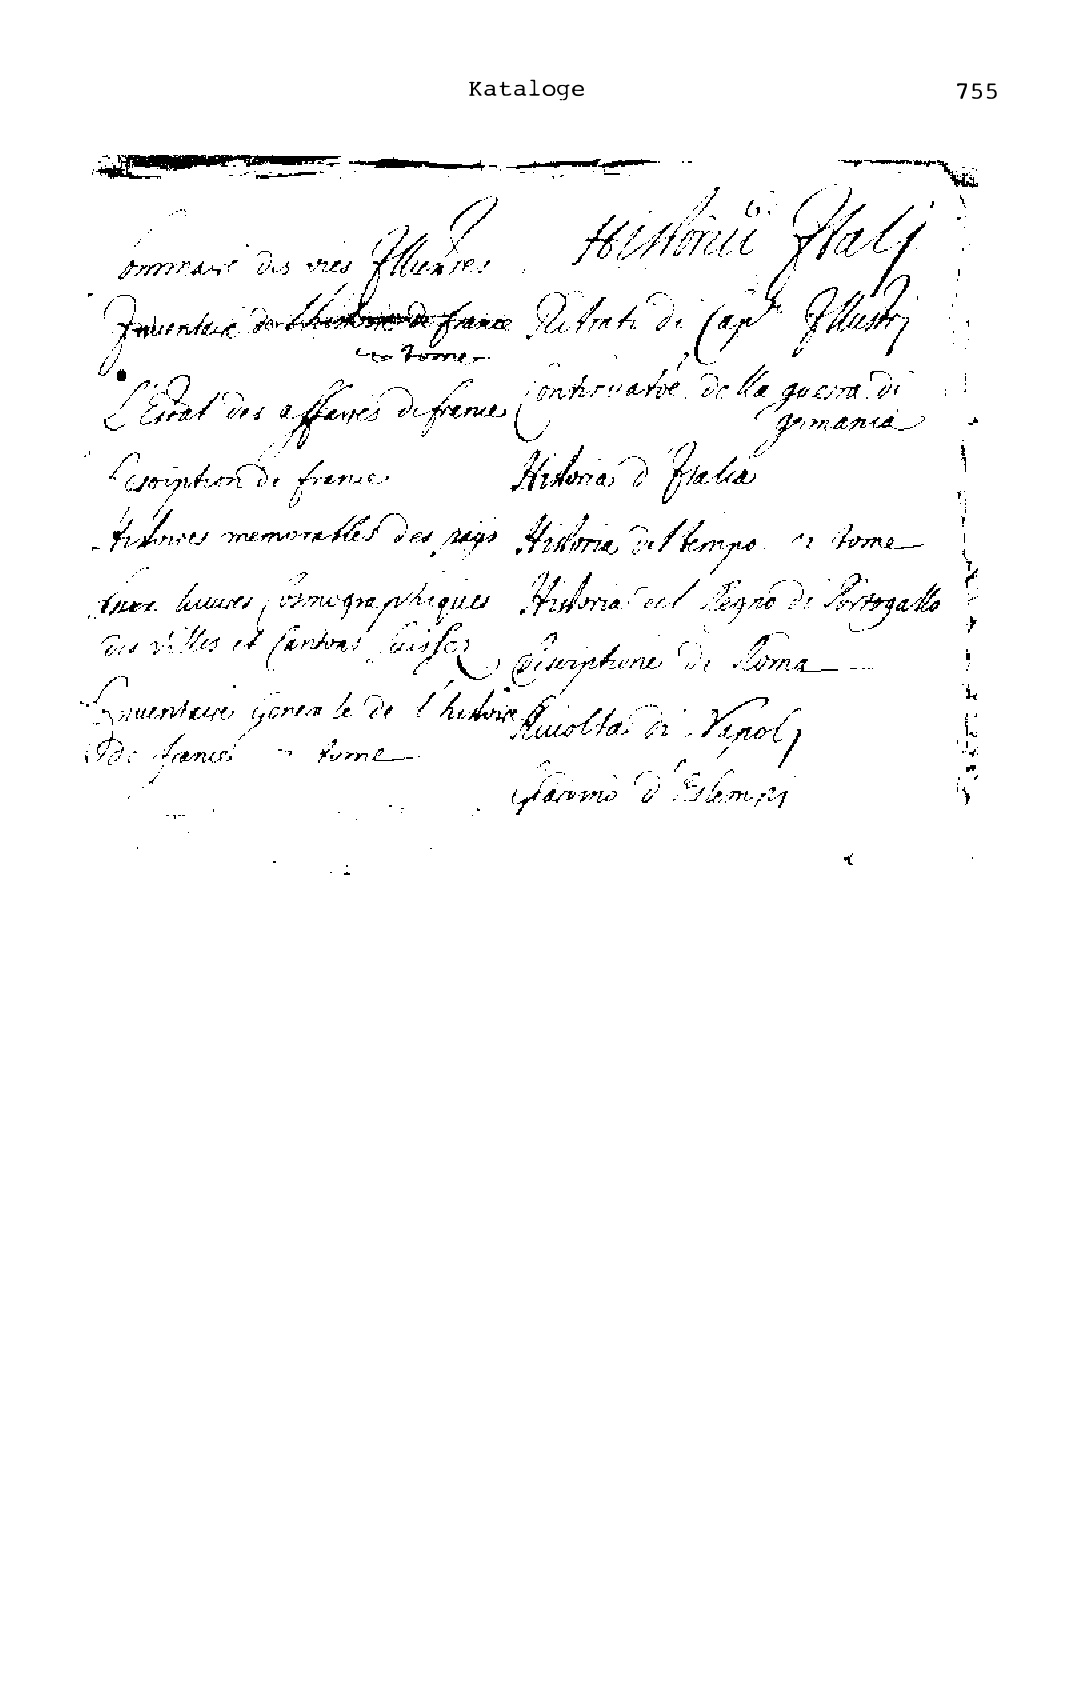 Kataloge 755
Sommaire des vies Illustres
Inuentaire de l'histoire de france
tome
L'Estat des affaires de france
Description de france
Histoires memorables des pays
liures Cosmographiques
des villes et Cantons Suisses
Inuentaire generale de l'histoire
de france tome
Historici Italj
Ritratti di Capi Illustrj
Continuatōe della guerra di
germania
Historia d'Italia
Historia del tempo 2 tome
Historia del Regno di Portogallo
Descriptione di Roma
Riuolta di Napolj
Giacomo